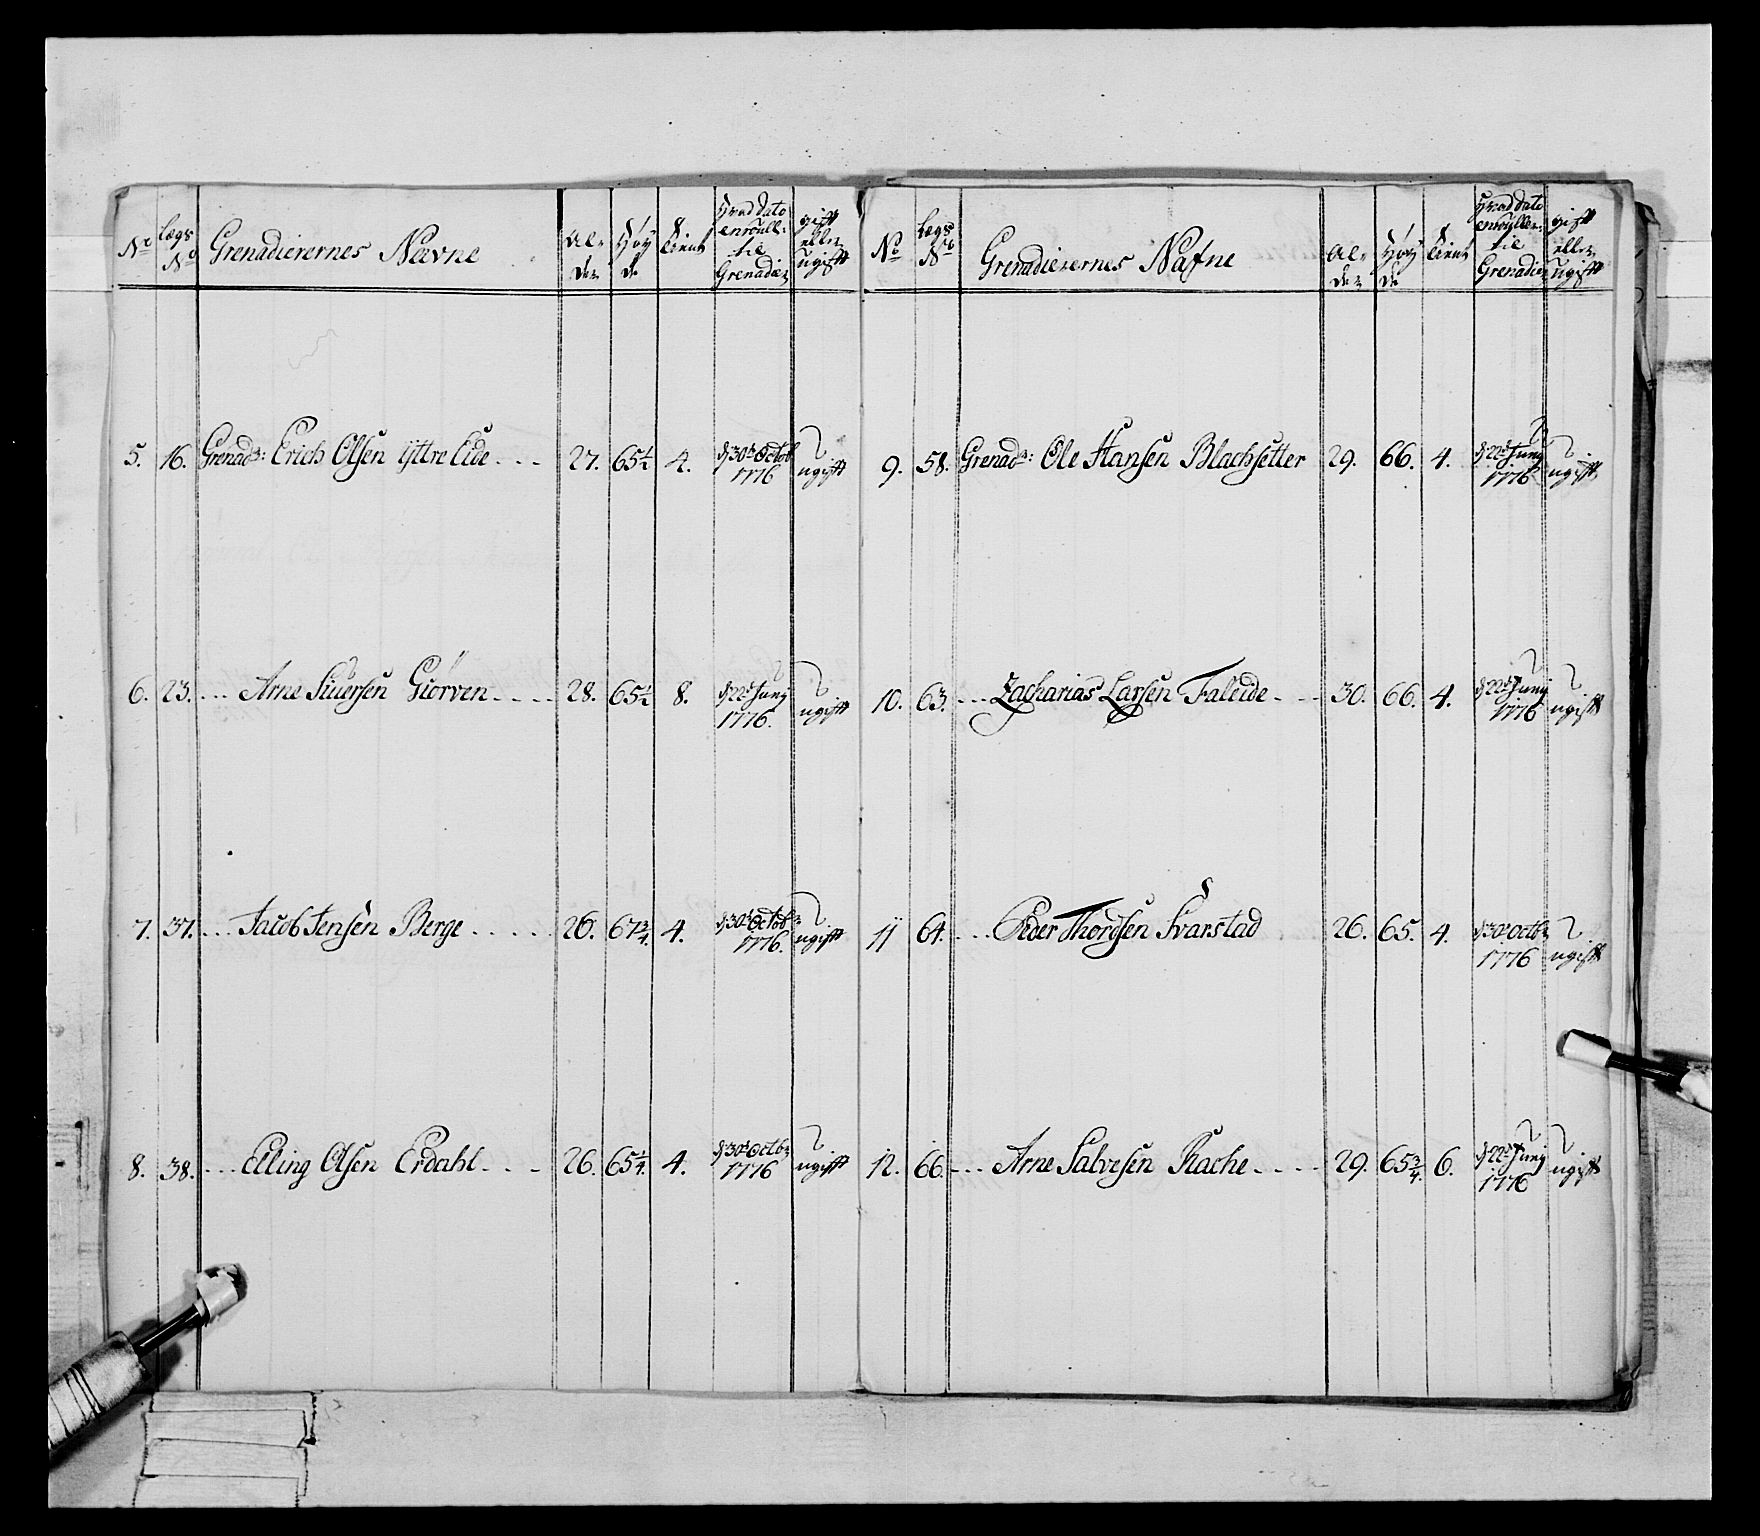 No Lægs No Grenadierernes Navne Alder Høyde Tient Hvad dato enroulle: til Grenadier gift eller ugift
5. 16. Grenadr: Erich Olsen ÿttre Eide . . . 27. 65½ 4. d 30t Octob 1776 ugift
6. 23. . . . Arne Siuersen Giörven . . . . 28. 65½ 8. d 22d Junÿ 1776. ugift
7. 37. . . . Jacob Jensen Berge . . . . . 26. 67¾ 4. d 30t Octobr 1776. ugift
8. 38. . . . Elling Olsen Erdahl . . . 26. 65¼ 4. d 30t Octbr 1776 ugift
No Lægs No Grenadierernes Nafne Alder Høyde Tient Hvad dato enroulle: til Grenadier gift eller ugift
9. 58. Grenadr: Ole Hansen Blachsetter 29. 66. 4. d 22d Junÿ 1776 ugift
10. 63. . . . Zacharias Larsen Faleide . . . 30. 66. 4. d 22d Junÿ 1776 ugift
11 64. . . . Peder Thordsen Svarstad 26. 65. 4. d 30t Octbr 1776 ugift
12. 66. . . . Arne Salvesen Rache . . . . 29. 65¾ 6. d 22d Junÿ 1776 ugift